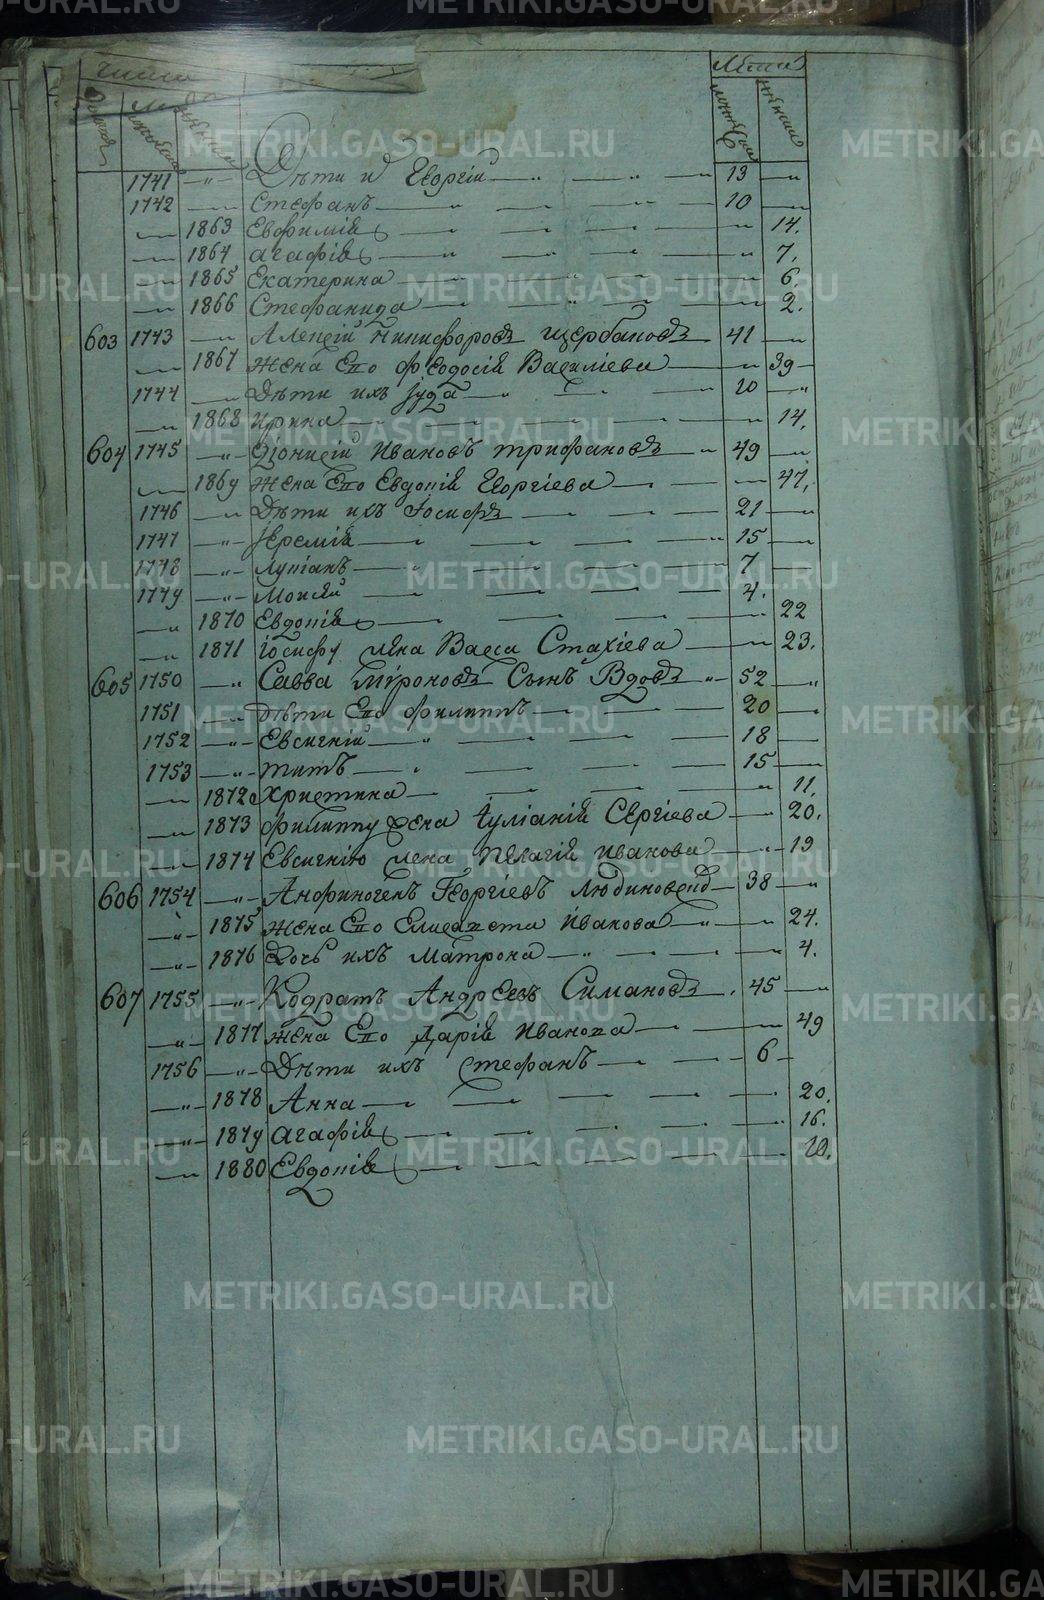 числа
Лѣта
домовъ
мужска
женска
мужска
женска
1741 Дѣти и Георгій 13
1742 Стефанъ 10
1863 Евфимія 14.
1864 Агафія 7.
1865 Екатерина 6.
1866 Стефанида 2.
603 1743 Алексій Никифоровъ Щербаковъ 41
1867 жена Его Феодосія Василіева 39
1744 Дѣти ихъ Іуда 10
1868 Ирина 14.
604 1745 Діонисій Ивановъ Трифановъ 49
1869 жена Его Евдокія Георгіева 47,
1746 Дѣти ихъ Іосифъ 21
1747 Іеремія 15
1748 Лукіанъ 7
1749 Моисій 4.
1870 Евдокія 22
1871 Іосифу жена Васса Стахіева 23.
605 1750 Савва Мироновъ Сынъ Вдовъ 52
1751 Дѣти Его Филиппъ 20
1752 Евсигній 18
1753 Титъ 15
1872 Христина 11,
1873 Филиппу жена Іуліанія Сергіева 20.
1874 Евсигнію жена Пелагія Иванова 19
606 1754 Анфиногенъ Георгіевъ 38
1875 жена Его Елисавета Иванова 24.
1876 Дочь ихъ Матрона 4.
607 1755 Кодратъ Андреевъ Симановъ 45
1877 жена Его Дарія Иванова 49
1756 Дѣти ихъ Стефанъ 6
1878 Анна 20.
1879 Агафія 16.
1880 Евдокія 10.
METRIKI.GASO-URAL.RU